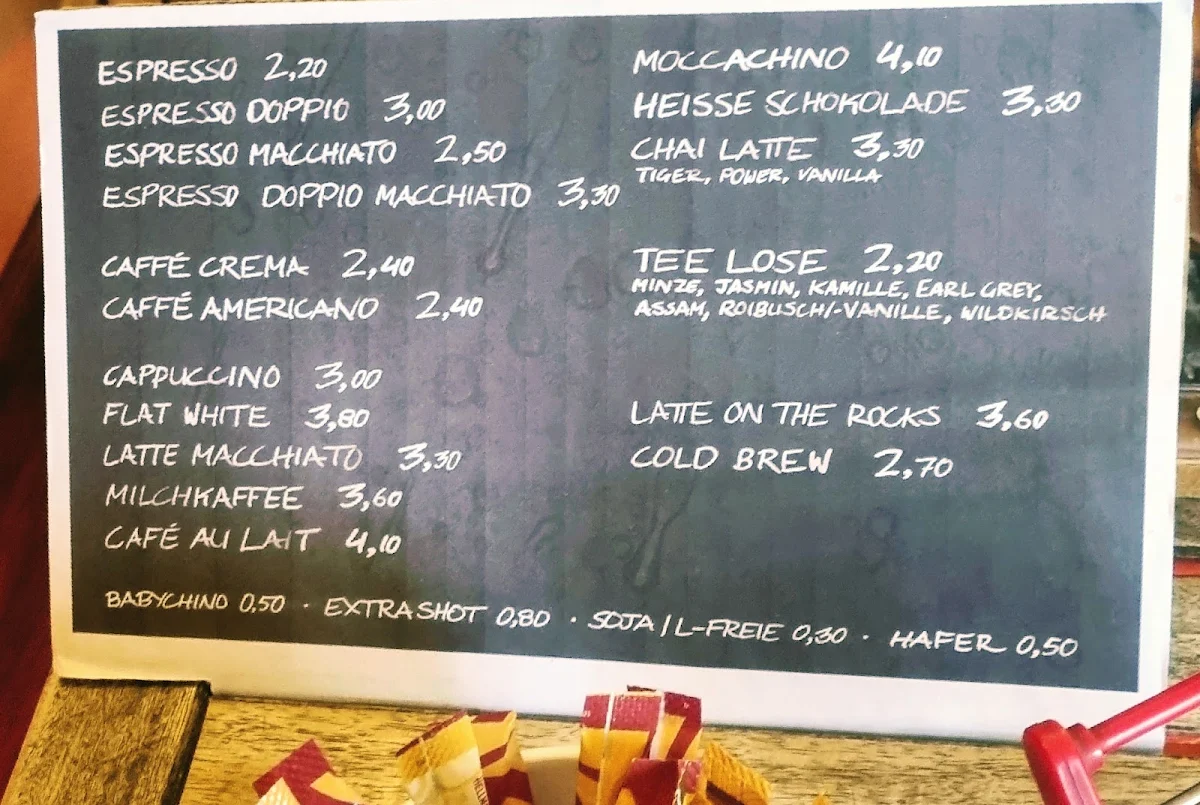 ESPRESSO 2,20
ESPRESSO DOPPIO 3,00
ESPRESSO MACCHIATO 2,50
ESPRESSO DOPPIO MACCHIATO 3,30
CAFFÉ CREMA 2,40
CAFFÉ AMERICANO 2,40
CAPPUCCINO 3,00
FLAT WHITE 3,80
LATTE MACCHIATO 3,30
MILCHKAFFEE 3,60
CAFÉ AU LAIT 4,10
MOCCACHINO 4,10
HEISSE SCHOKOLADE 3,30
CHAI LATTE 3,30
TIGER, POWER, VANILLA
TEE LOSE 2,20
MINZE, JASMIN, KAMILLE, EARL GREY,
ASSAM, ROIBUSCH/-VANILLE, WILDKIRSCH
LATTE ON THE ROCKS 3,60
COLD BREW 2,70
BABYCHINO 0,50 · EXTRA SHOT 0,80 · SOJA/L-FREIE 0,30 · HAFER 0,50